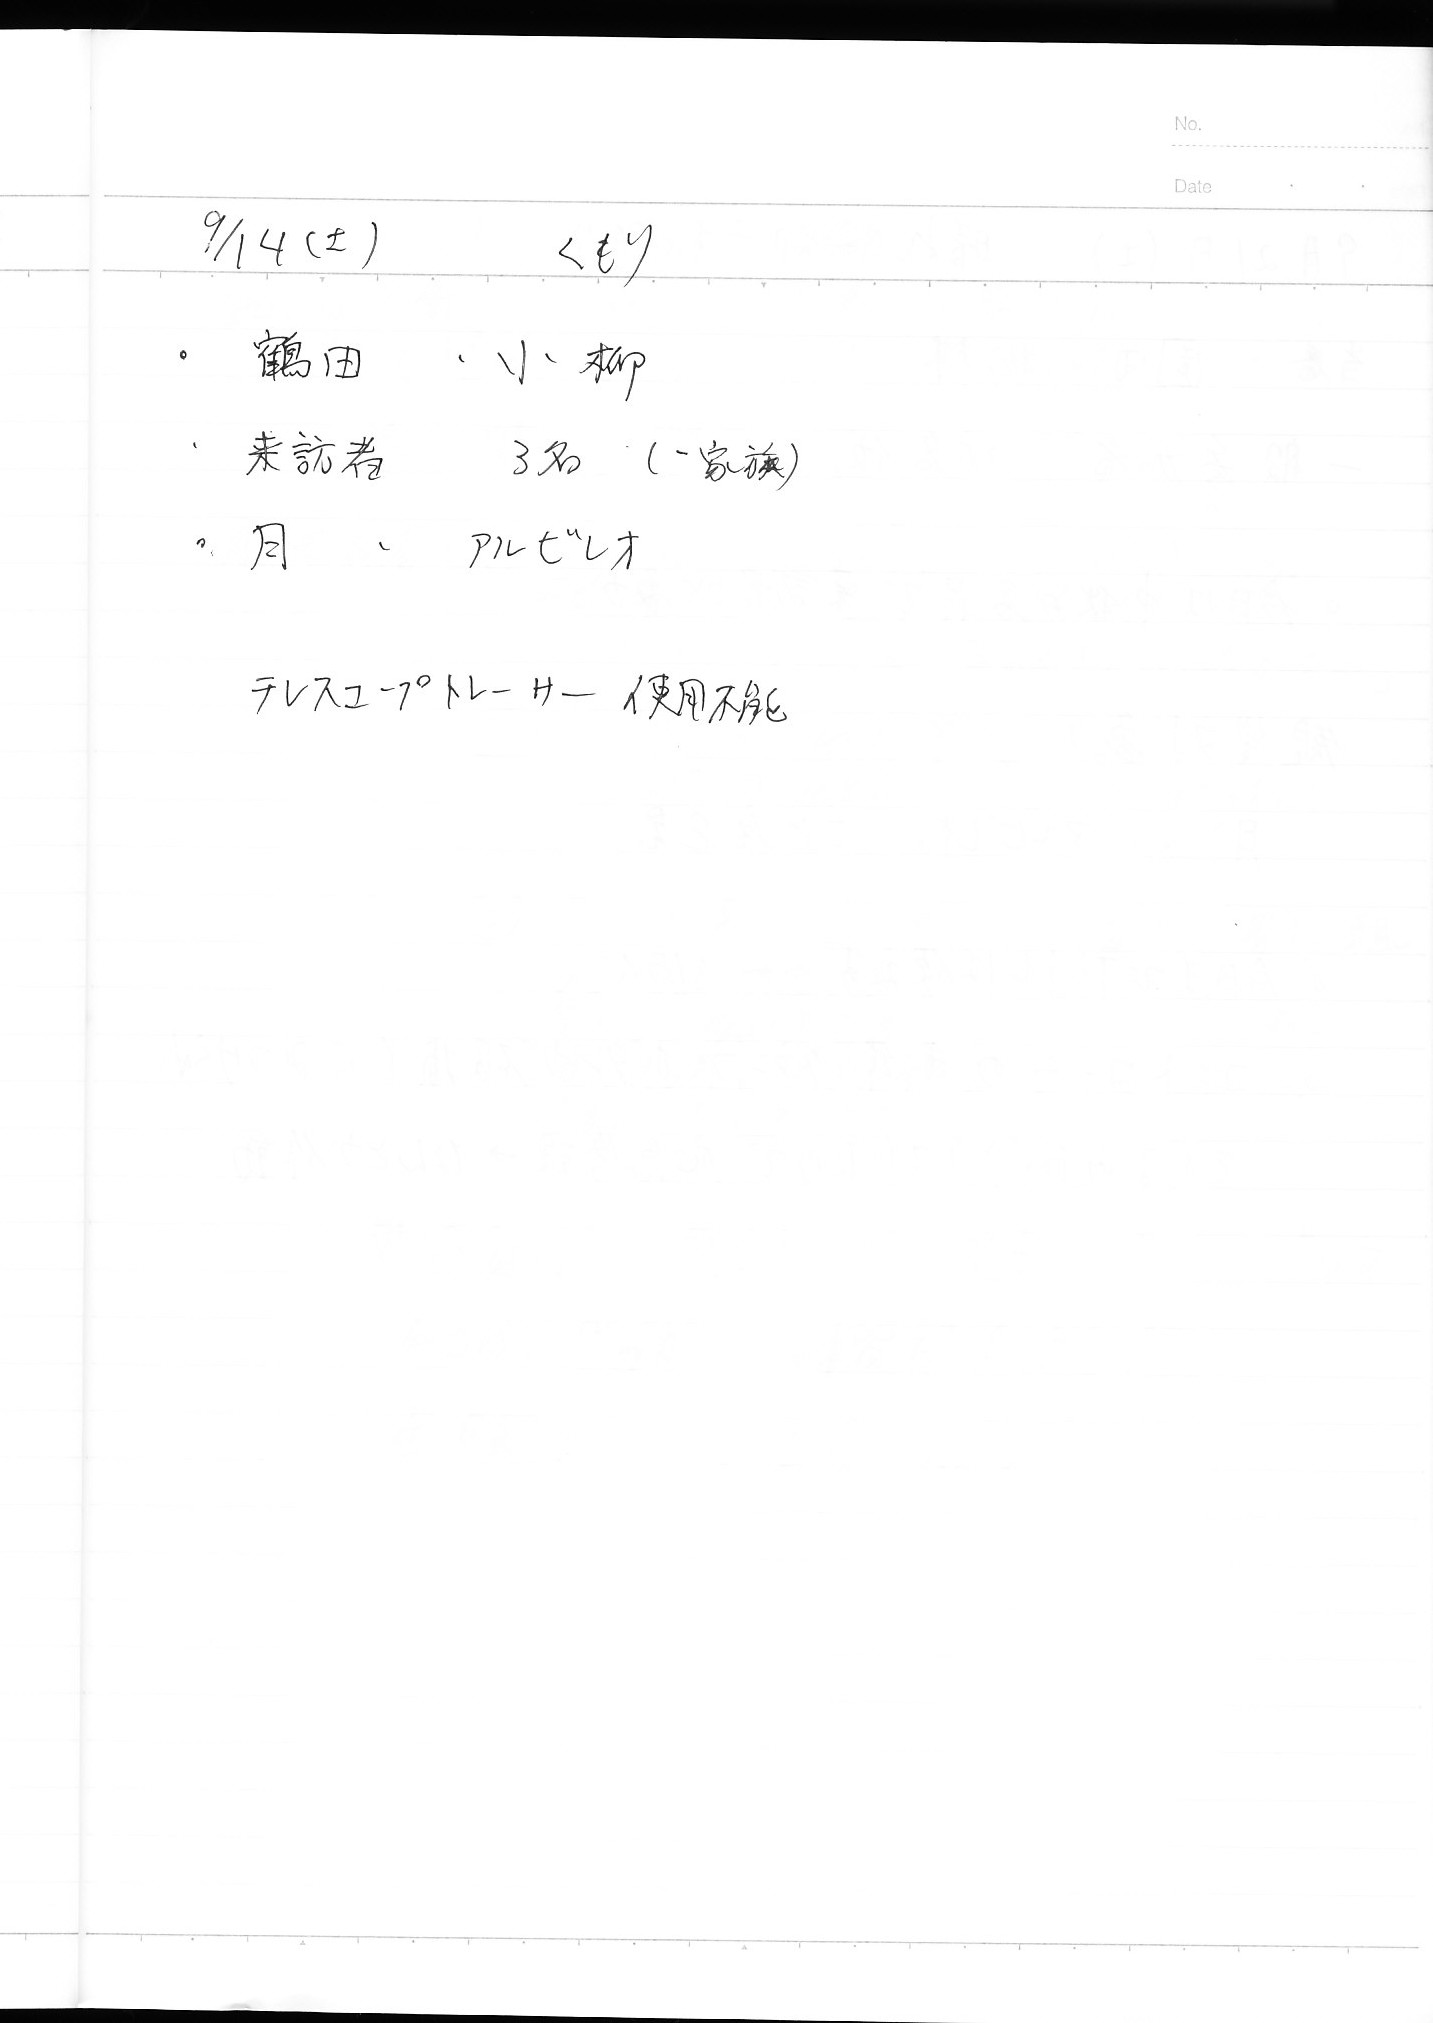 No.
Date
9/14(土) くもり
・ 鶴田 ・小柳
・ 来訪者 3名 (一家族)
・ 月 、 アルビレオ
テレスコープトレーサー 使用不能